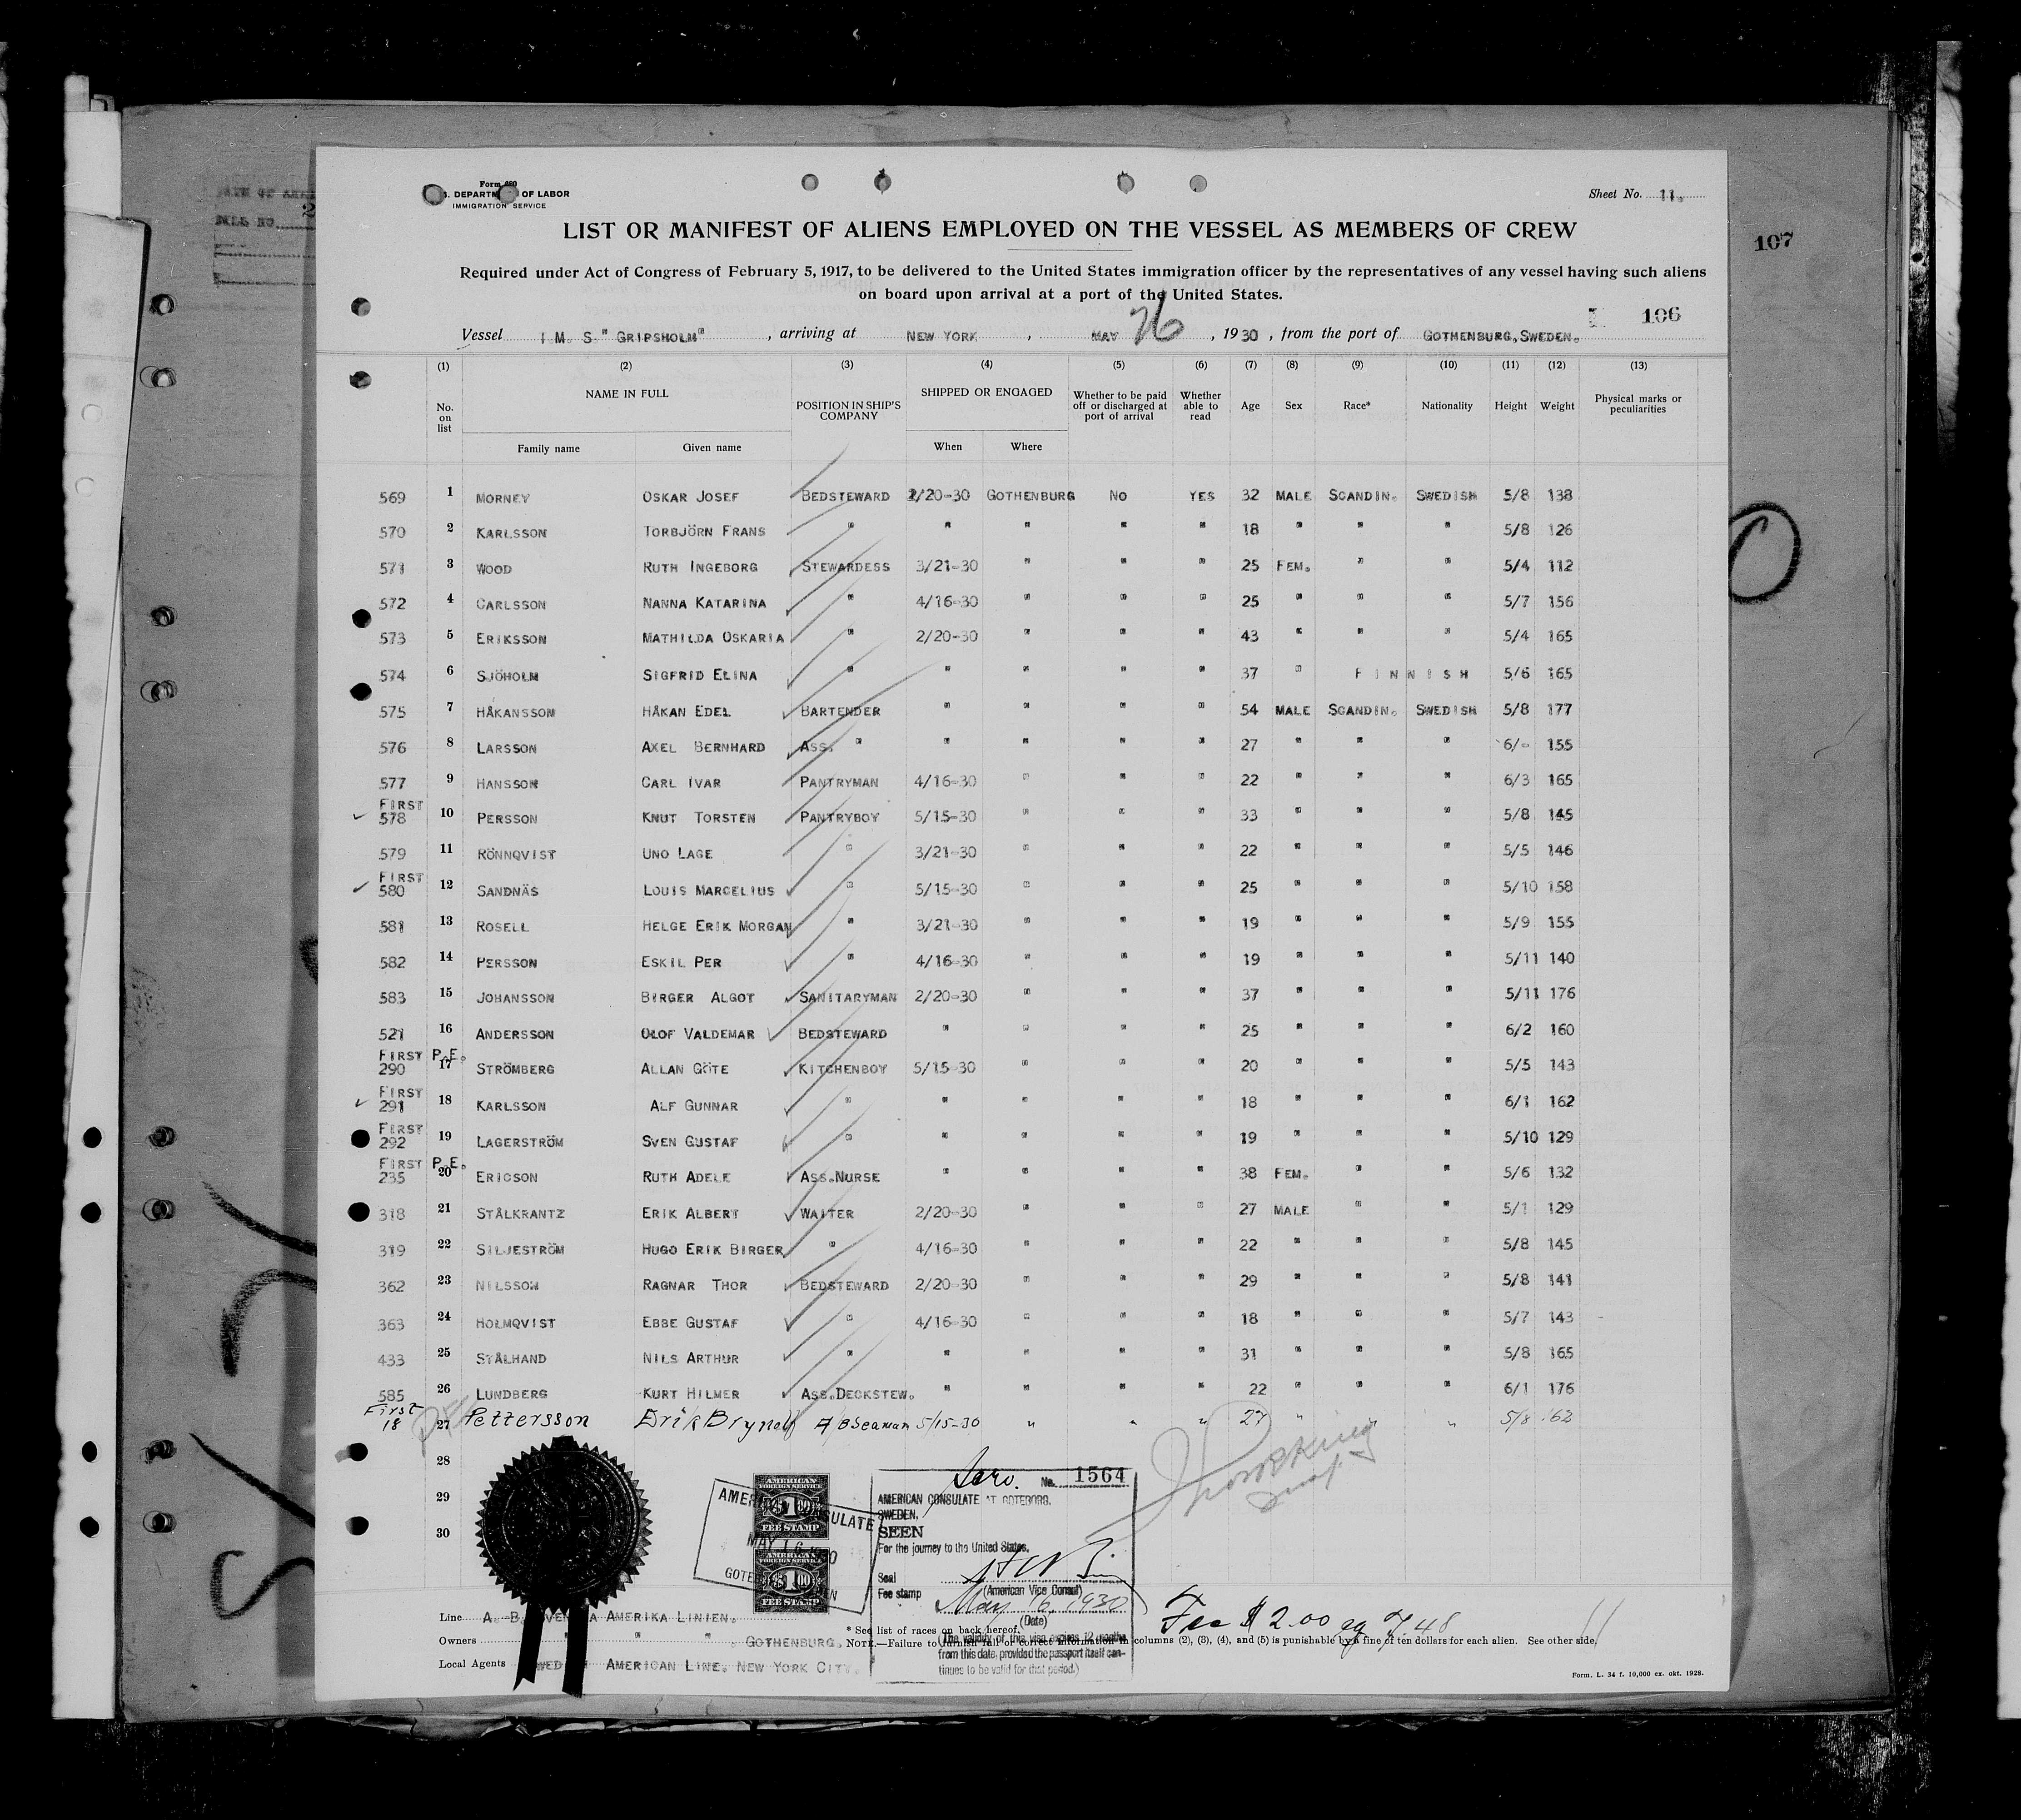 Form 680
U. S. DEPARTMENT OF LABOR
IMMIGRATION SERVICE
Sheet No. 11.
LIST OR MANIFEST OF ALIENS EMPLOYED ON THE VESSEL AS MEMBERS OF CREW
107
Required under Act of Congress of February 5, 1917, to be delivered to the United States immigration officer by the representatives of any vessel having such aliens
on board upon arrival at a port of the United States.
106
Vessel M. S. " GRIPSHOLM" , arriving at NEW YORK , MAY 26 , 1930 , from the port of GOTHENBURG, SWEDEN.
(1) (2) (3) (4) (5) (6) (7) (8) (9) (10) (11) (12) (13)
No. on list NAME IN FULL Family name Given name POSITION IN SHIP'S COMPANY SHIPPED OR ENGAGED When Where Whether to be paid off or discharged at port of arrival Whether able to read Age Sex Race* Nationality Height Weight Physical marks or peculiarities
569 1 MORNEY OSKAR JOSEF BEDSTEWARD 2/20-30 GOTHENBURG NO YES 32 MALE SCANDIN. SWEDISH 5/8 138
570 2 KARLSSON TORBJÖRN FRANS " " " " " 18 " " " 5/8 126
571 3 WOOD RUTH INGEBORG STEWARDESS 3/21-30 " " " 25 FEM. " " 5/4 112
572 4 CARLSSON NANNA KATARINA " 4/16-30 " " " 25 " " " 5/7 156
573 5 ERIKSSON MATHILDA OSKARIA " 2/20-30 " " " 43 " " " 5/4 165
574 6 SJÖHOLM SIGFRID ELINA " " " " " 37 " FINNISH 5/6 165
575 7 HÅKANSSON HÅKAN EDEL BARTENDER " " " " 54 MALE SCANDIN. SWEDISH 5/8 177
576 8 LARSSON AXEL BERNHARD ASS. " " " " " 27 " " " 6/- 155
577 9 HANSSON CARL IVAR PANTRYMAN 4/16-30 " " " 22 " " " 6/3 165
FIRST
578 10 PERSSON KNUT TORSTEN PANTRYBOY 5/15-30 " " " 33 " " " 5/8 145
579 11 RÖNNQVIST UNO LAGE " 3/21-30 " " " 22 " " " 5/5 146
FIRST
580 12 SANDNÄS LOUIS MARCELIUS " 5/15-30 " " " 25 " " " 5/10 158
581 13 ROSELL HELGE ERIK MORGAN " 3/21-30 " " " 19 " " " 5/9 155
582 14 PERSSON ESKIL PER " 4/16-30 " " " 19 " " " 5/11 140
583 15 JOHANSSON BIRGER ALGOT SANITARYMAN 2/20-30 " " " 37 " " " 5/11 176
521 16 ANDERSSON OLOF VALDEMAR BEDSTEWARD " " " " 25 " " " 6/2 160
FIRST P.E.
290 17 STRÖMBERG ALLAN GÖTE KITCHENBOY 5/15-30 " " " 20 " " " 5/5 143
FIRST
291 18 KARLSSON ALF GUNNAR " " " " " 18 " " " 6/1 162
FIRST
292 19 LAGERSTRÖM SVEN GUSTAF " " " " " 19 " " " 5/10 129
FIRST P.E.
235 20 ERICSON RUTH ADELE ASS.NURSE " " " " 38 FEM. " " 5/6 132
318 21 STÅLKRANTZ ERIK ALBERT WAITER 2/20-30 " " " 27 MALE " " 5/1 129
319 22 SILJESTRÖM HUGO ERIK BIRGER " 4/16-30 " " " 22 " " " 5/8 145
362 23 NILSSON RAGNAR THOR BEDSTEWARD 2/20-30 " " " 29 " " " 5/8 141
363 24 HOLMQVIST EBBE GUSTAF " 4/16-30 " " " 18 " " " 5/7 143
433 25 STÅLHAND NILS ARTHUR " " " " " 31 " " " 5/8 165
585 26 LUNDBERG KURT HILMER ASS.DECKSTEW. " " " " 22 " " " 6/1 176
First
18 27 Pettersson Erik Brynolf A B Seaman 5/15-30 " " " 27 " " " 5/8 162
28
29
30
No. 1564
AMERICAN CONSULATE AT GOTEBORG,
SWEDEN.
SEEN
For the journey to the United States,
Seal
(American Vice Consul)
Fee stamp
May 16, 1930
(Date)
(The validity of this visa expires 12 months
from this date, provided the passport itself con-
tinues to be valid for that period.)
AMERICAN CONSULATE
MAY 16 1930
AMERICAN
FOREIGN SERVICE
$1.00
FEE STAMP
AMERICAN
FOREIGN SERVICE
$1.00
FEE STAMP
Fee $ 2.00 eq 7.48
11
Line A. B. SVENSKA AMERIKA LINIEN.
Owners " " " GOTHENBURG.
Local Agents SWEDISH AMERICAN LINE. NEW YORK CITY.
* See list of races on back hereof.
NOTE.—Failure to furnish full or correct information in columns (2), (3), (4), and (5) is punishable by a fine of ten dollars for each alien. See other side.
Form. L. 34 f. 10,000 ex. okt. 1928.